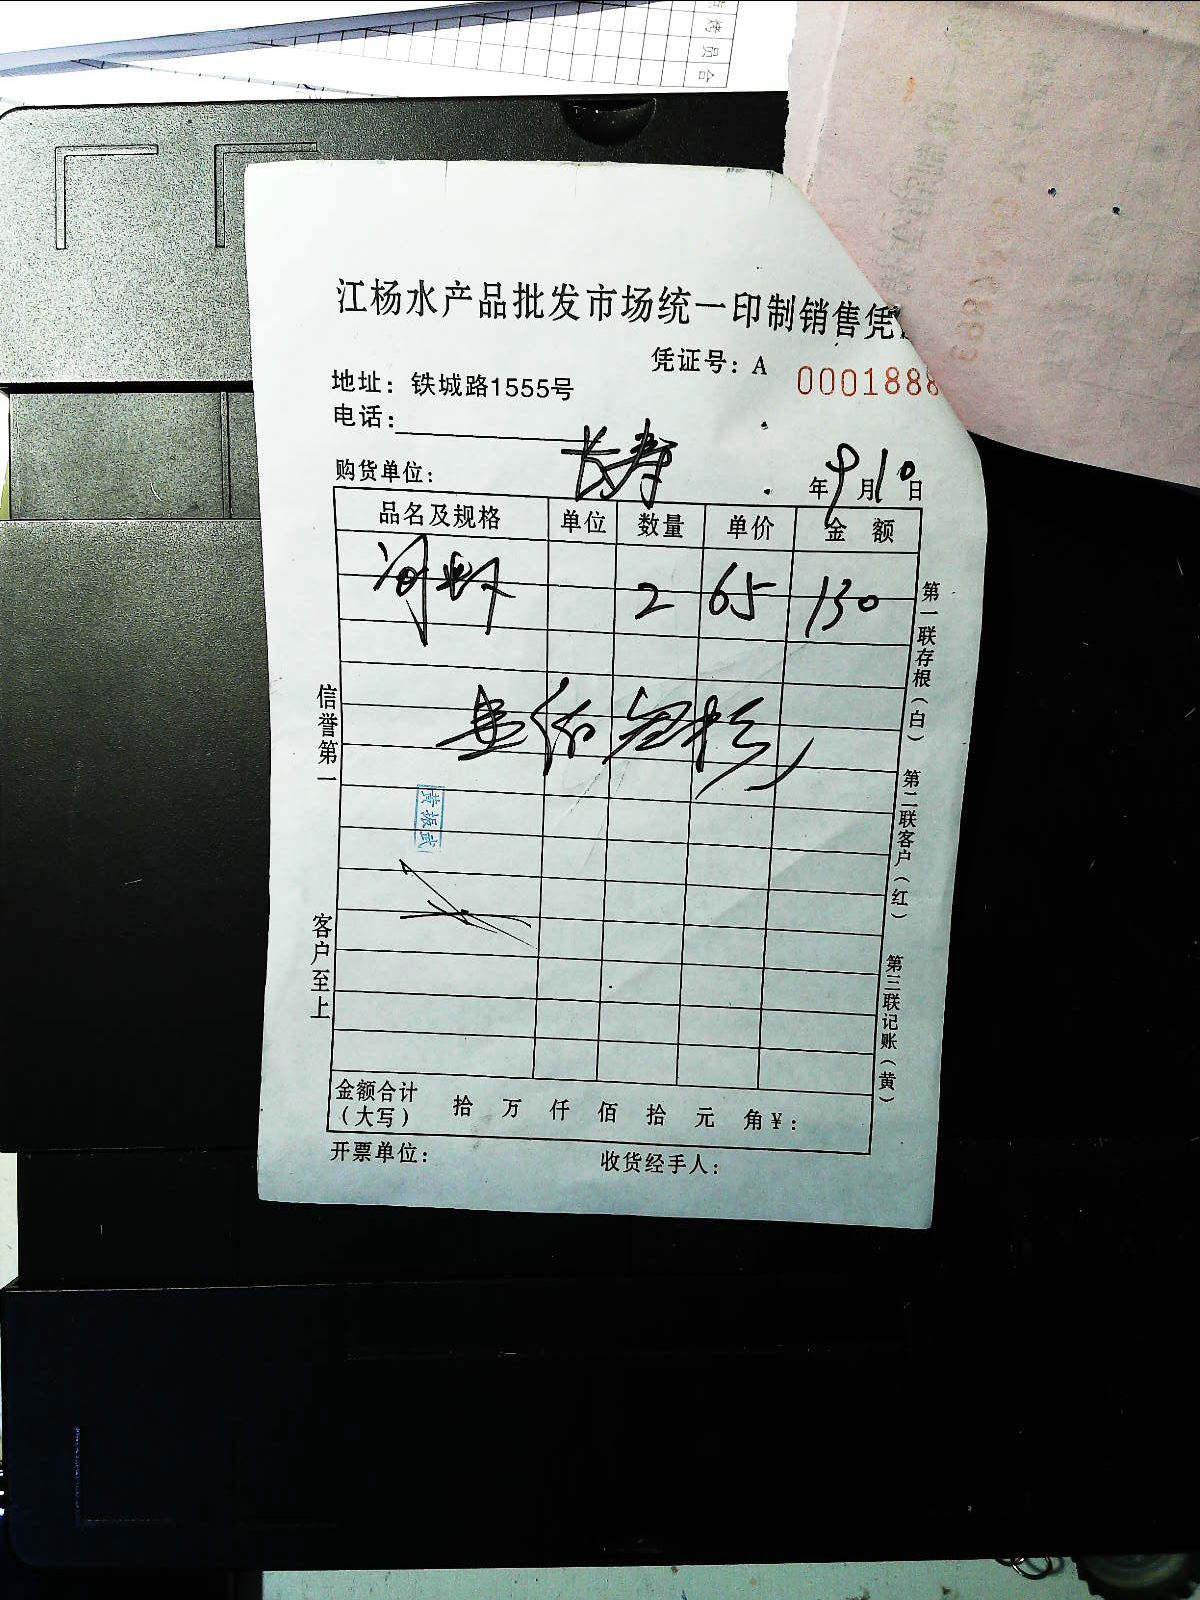 江杨水产品批发市场统一印制销售凭
凭证号：A 0001888
地址：铁城路1555号
电话：
购货单位： 长寿 年9月10日
品名及规格 单位 数量 单价 金额
河虾 2 65 130
黄振武
金额合计（大写） 拾 万 仟 佰 拾 元 角 ¥：
开票单位： 收货经手人：
信誉第一
客户至上
第一联存根（白）
第二联客户（红）
第三联记账（黄）